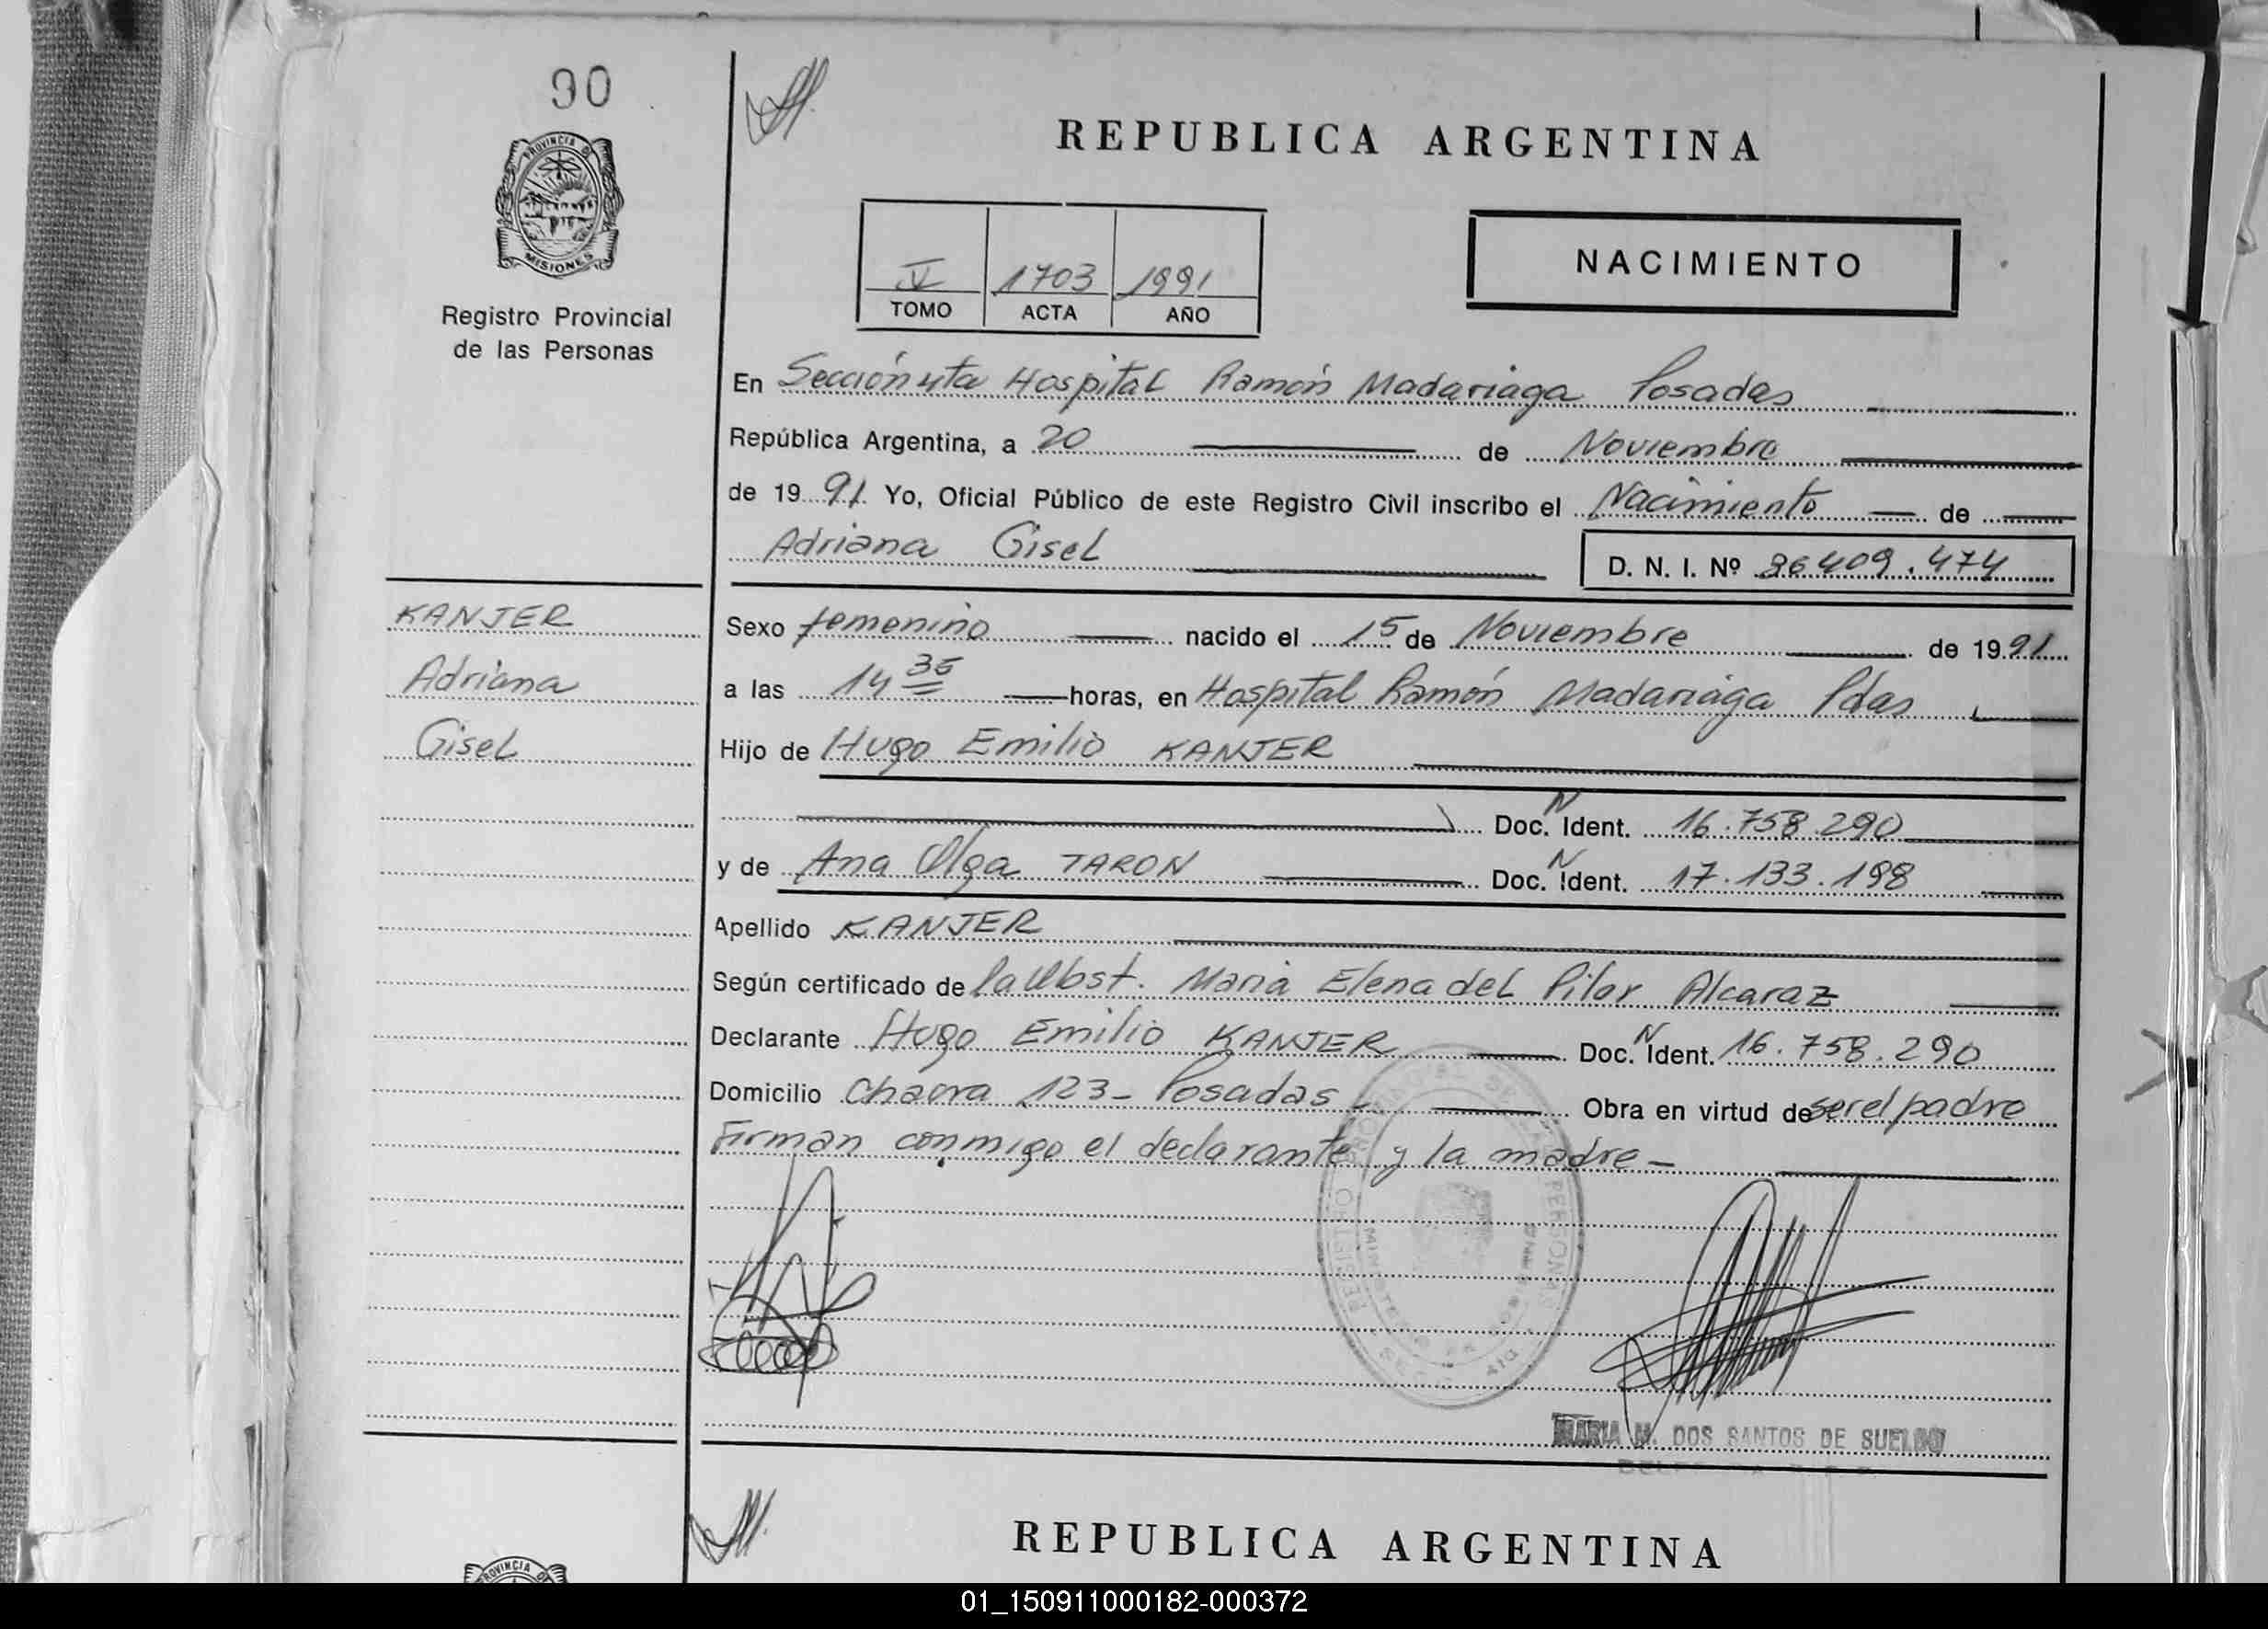 90
PROVINCIA DE
MISIONES
Registro Provincial
de las Personas
REPUBLICA ARGENTINA
IV 1703 1991
TOMO ACTA AÑO
NACIMIENTO
En Sección 4ta Hospital Ramón Madariaga Posadas
República Argentina, a 20 de Noviembre
de 1991 Yo, Oficial Público de este Registro Civil inscribo el Nacimiento de
Adriana Gisel D. N. I. Nº 36409.474
KANJER
Adriana
Gisel
Sexo femenino nacido el 15 de Noviembre de 1991
a las 14 35 horas, en Hospital Ramón Madariaga Pdas
Hijo de Hugo Emilio KANJER
Doc. N Ident. 16.758.290
y de Ana Olga TARON Doc. N Ident. 17.133.198
Apellido KANJER
Según certificado de la Obst. Maria Elena del Pilar Alcaraz
Declarante Hugo Emilio KANJER Doc. N Ident. 16.758.290
Domicilio Chacra 123- Posadas Obra en virtud de ser el padre
Firman conmigo el declarante y la madre -
MARIA M. DOS SANTOS DE SUELDO
REPUBLICA ARGENTINA
PROVINCIA DE
01_150911000182-000372